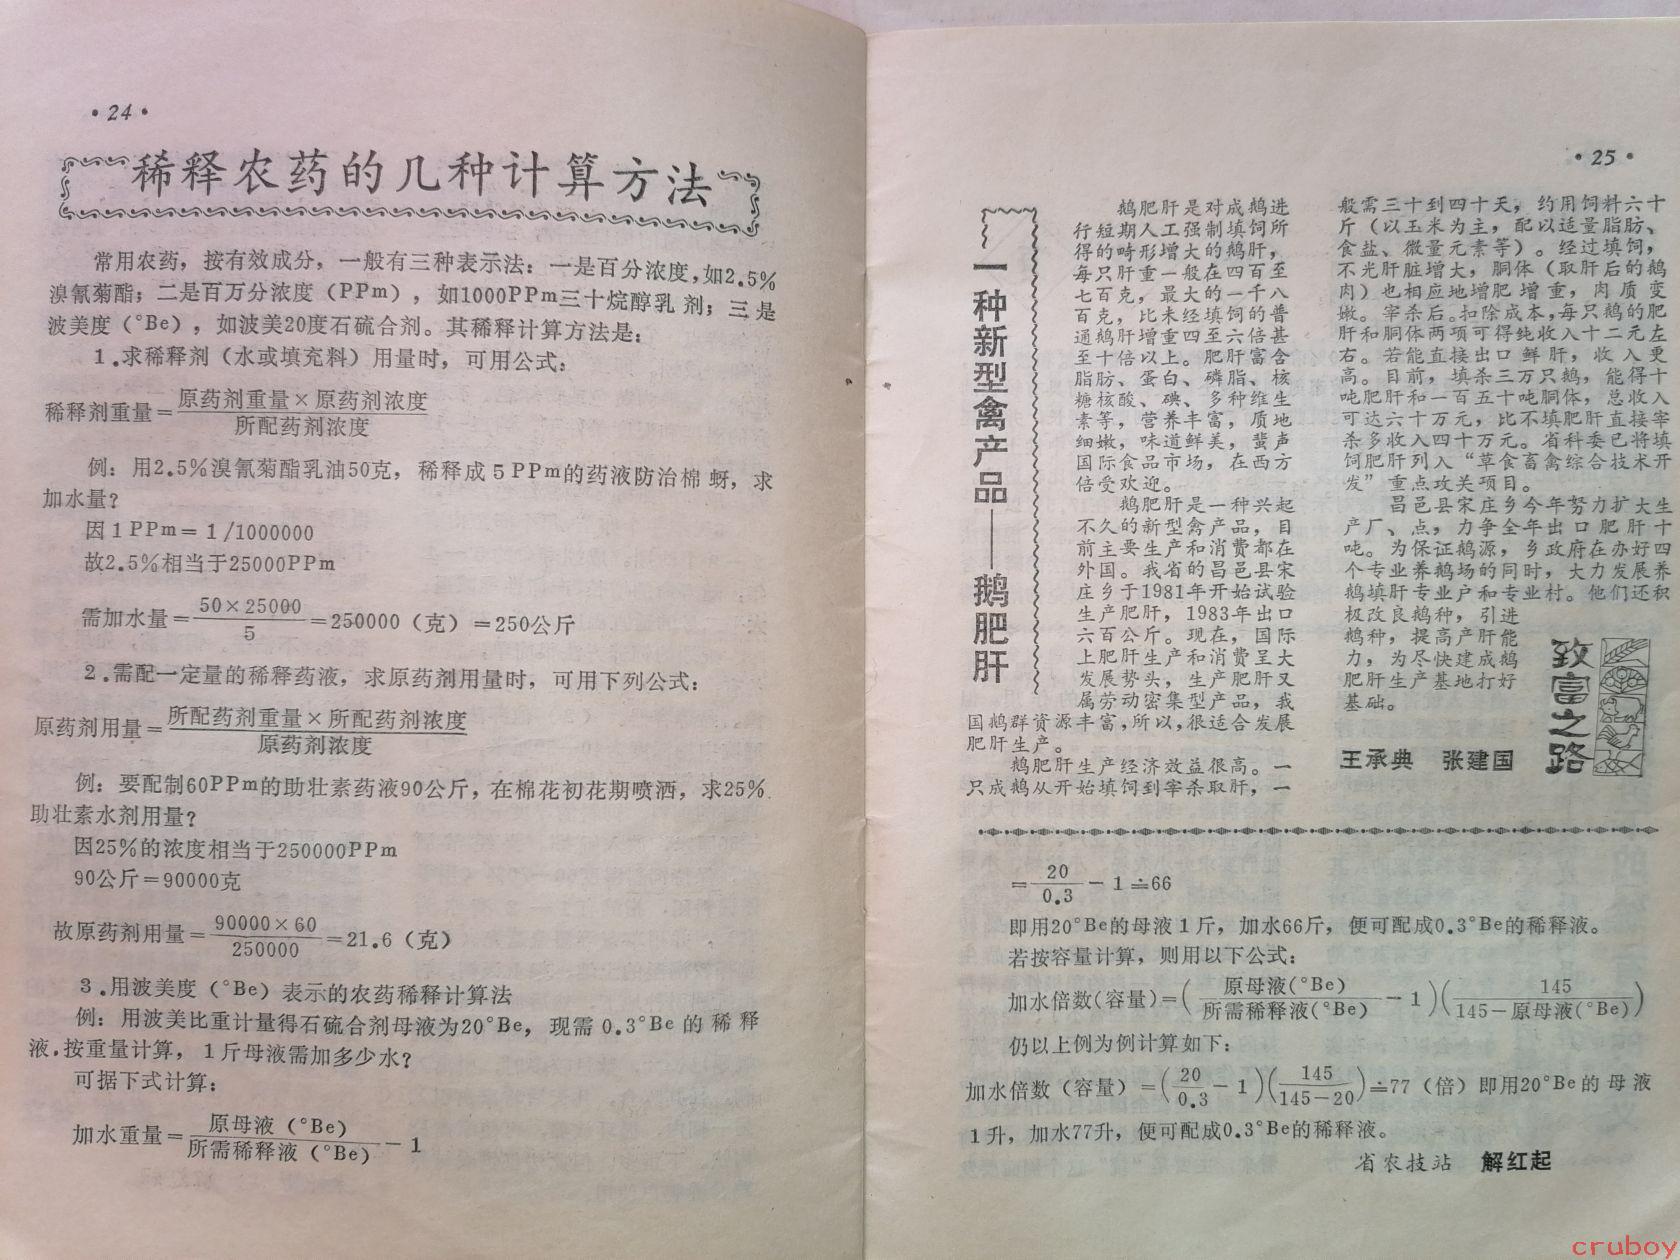 • 24 •
稀释农药的几种计算方法
常用农药，按有效成分，一般有三种表示法：一是百分浓度，如2.5%
溴氰菊酯；二是百万分浓度（PPm），如1000PPm三十烷醇乳剂；三是
波美度（°Be），如波美20度石硫合剂。其稀释计算方法是：
1.求稀释剂（水或填充料）用量时，可用公式：
稀释剂重量＝原药剂重量×原药剂浓度/所配药剂浓度
例：用2.5%溴氰菊酯乳油50克，稀释成5PPm的药液防治棉蚜，求
加水量？
因1PPm＝1/1000000
故2.5%相当于25000PPm
需加水量＝50×25000/5＝250000（克）＝250公斤
2.需配一定量的稀释药液，求原药剂用量时，可用下列公式：
原药剂用量＝所配药剂重量×所配药剂浓度/原药剂浓度
例：要配制60PPm的助壮素药液90公斤，在棉花初花期喷洒，求25%
助壮素水剂用量？
因25%的浓度相当于250000PPm
90公斤＝90000克
故原药剂用量＝90000×60/250000＝21.6（克）
3.用波美度（°Be）表示的农药稀释计算法
例：用波美比重计量得石硫合剂母液为20°Be，现需0.3°Be的稀释
液.按重量计算，1斤母液需加多少水？
可据下式计算：
加水重量＝原母液（°Be）/所需稀释液（°Be）－1
• 25 •
一种新型禽产品——鹅肥肝
鹅肥肝是对成鹅进
行短期人工强制填饲所
得的畸形增大的鹅肝，
每只肝重一般在四百至
七百克，最大的一千八
百克，比未经填饲的普
通鹅肝增重四至六倍甚
至十倍以上。肥肝富含
脂肪、蛋白、磷脂、核
糖核酸、碘、多种维生
素等，营养丰富，质地
细嫩，味道鲜美，蜚声
国际食品市场，在西方
倍受欢迎。
鹅肥肝是一种兴起
不久的新型禽产品，目
前主要生产和消费都在
外国。我省的昌邑县宋
庄乡于1981年开始试验
生产肥肝，1983年出口
六百公斤。现在，国际
上肥肝生产和消费呈大
发展势头，生产肥肝又
属劳动密集型产品，我
国鹅群资源丰富，所以，很适合发展
肥肝生产。
鹅肥肝生产经济效益很高。一
只成鹅从开始填饲到宰杀取肝，一
般需三十到四十天，约用饲料六十
斤（以玉米为主，配以适量脂肪、
食盐、微量元素等）。经过填饲，
不光肝脏增大，胴体（取肝后的鹅
肉）也相应地增肥增重，肉质变
嫩。宰杀后。扣除成本，每只鹅的肥
肝和胴体两项可得纯收入十二元左
右。若能直接出口鲜肝，收入更
高。目前，填杀三万只鹅，能得十
吨肥肝和一百五十吨胴体，总收入
可达六十万元，比不填肥肝直接宰
杀多收入四十万元。省科委已将填
饲肥肝列入“草食畜禽综合技术开
发”重点攻关项目。
昌邑县宋庄乡今年努力扩大生
产厂、点，力争全年出口肥肝十
吨。为保证鹅源，乡政府在办好四
个专业养鹅场的同时，大力发展养
鹅填肝专业户和专业村。他们还积
极改良鹅种，引进
鹅种，提高产肝能
力，为尽快建成鹅
肥肝生产基地打好
基础。
王承典 张建国
致富之路
＝20/0.3－1≐66
即用20°Be的母液1斤，加水66斤，便可配成0.3°Be的稀释液。
若按容量计算，则用以下公式：
加水倍数（容量）＝(原母液(°Be)/所需稀释液(°Be)－1)(145/145－原母液(°Be))
仍以上例为例计算如下：
加水倍数（容量）＝(20/0.3－1)(145/145－20)≐77（倍）即用20°Be的母液
1升，加水77升，便可配成0.3°Be的稀释液。
省农技站 解红起
cruboy